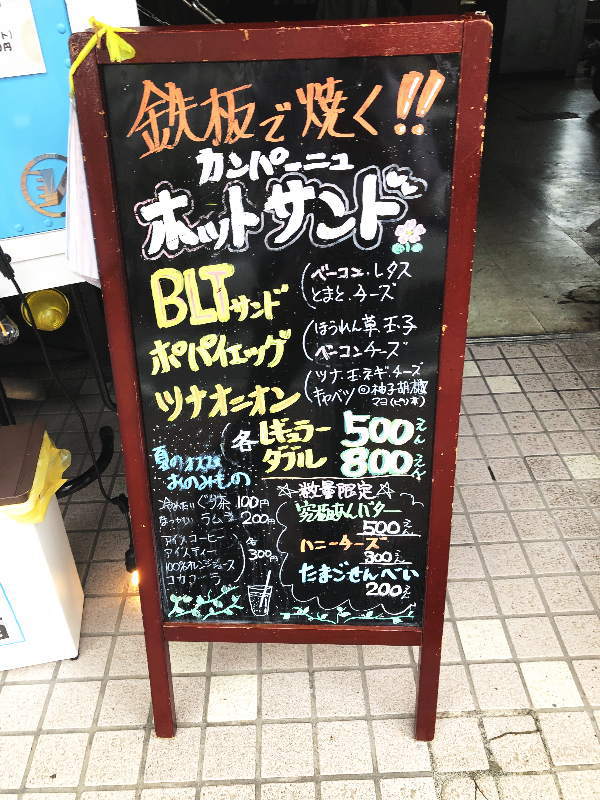 鉄板で焼く!!
カンパーニュ
ホットサンド
BLTサンド
(ベーコン・レタス
とまと・チーズ
ポパイエッグ
(ほうれん草玉子
ベーコンチーズ
ツナオニオン
(ツナ・玉ネギ・チーズ
キャベツ@柚子胡椒
マヨ(ピリ辛)
各
レギュラー 500えん
ダブル 800えん
夏のオススメ
おのみもの
冷めたい ぐり茶 100円
ラムネ 200円
アイスコーヒー
アイスティー
100%オレンジジュース
コカコーラ
各300円
☆数量限定☆
究極あんバター
500えん
ハニーチーズ
300えん
たまごせんべい
200えん